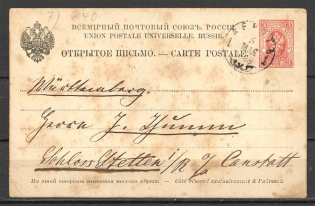 ВСЕМІРНЫЙ ПОЧТОВЫЙ СОЮЗЪ. РОССІЯ.
UNION POSTALE UNIVERSELLE. RUSSIE.
ОТКРЫТОЕ ПИСЬМО. — CARTE POSTALE.
Württemberg.
Herrn J. Thumm
Schloss Stetten i/R b/ Canstatt
На этой сторонѣ пишется только адресъ. — Côté réservé exclusivement à l'adresse.